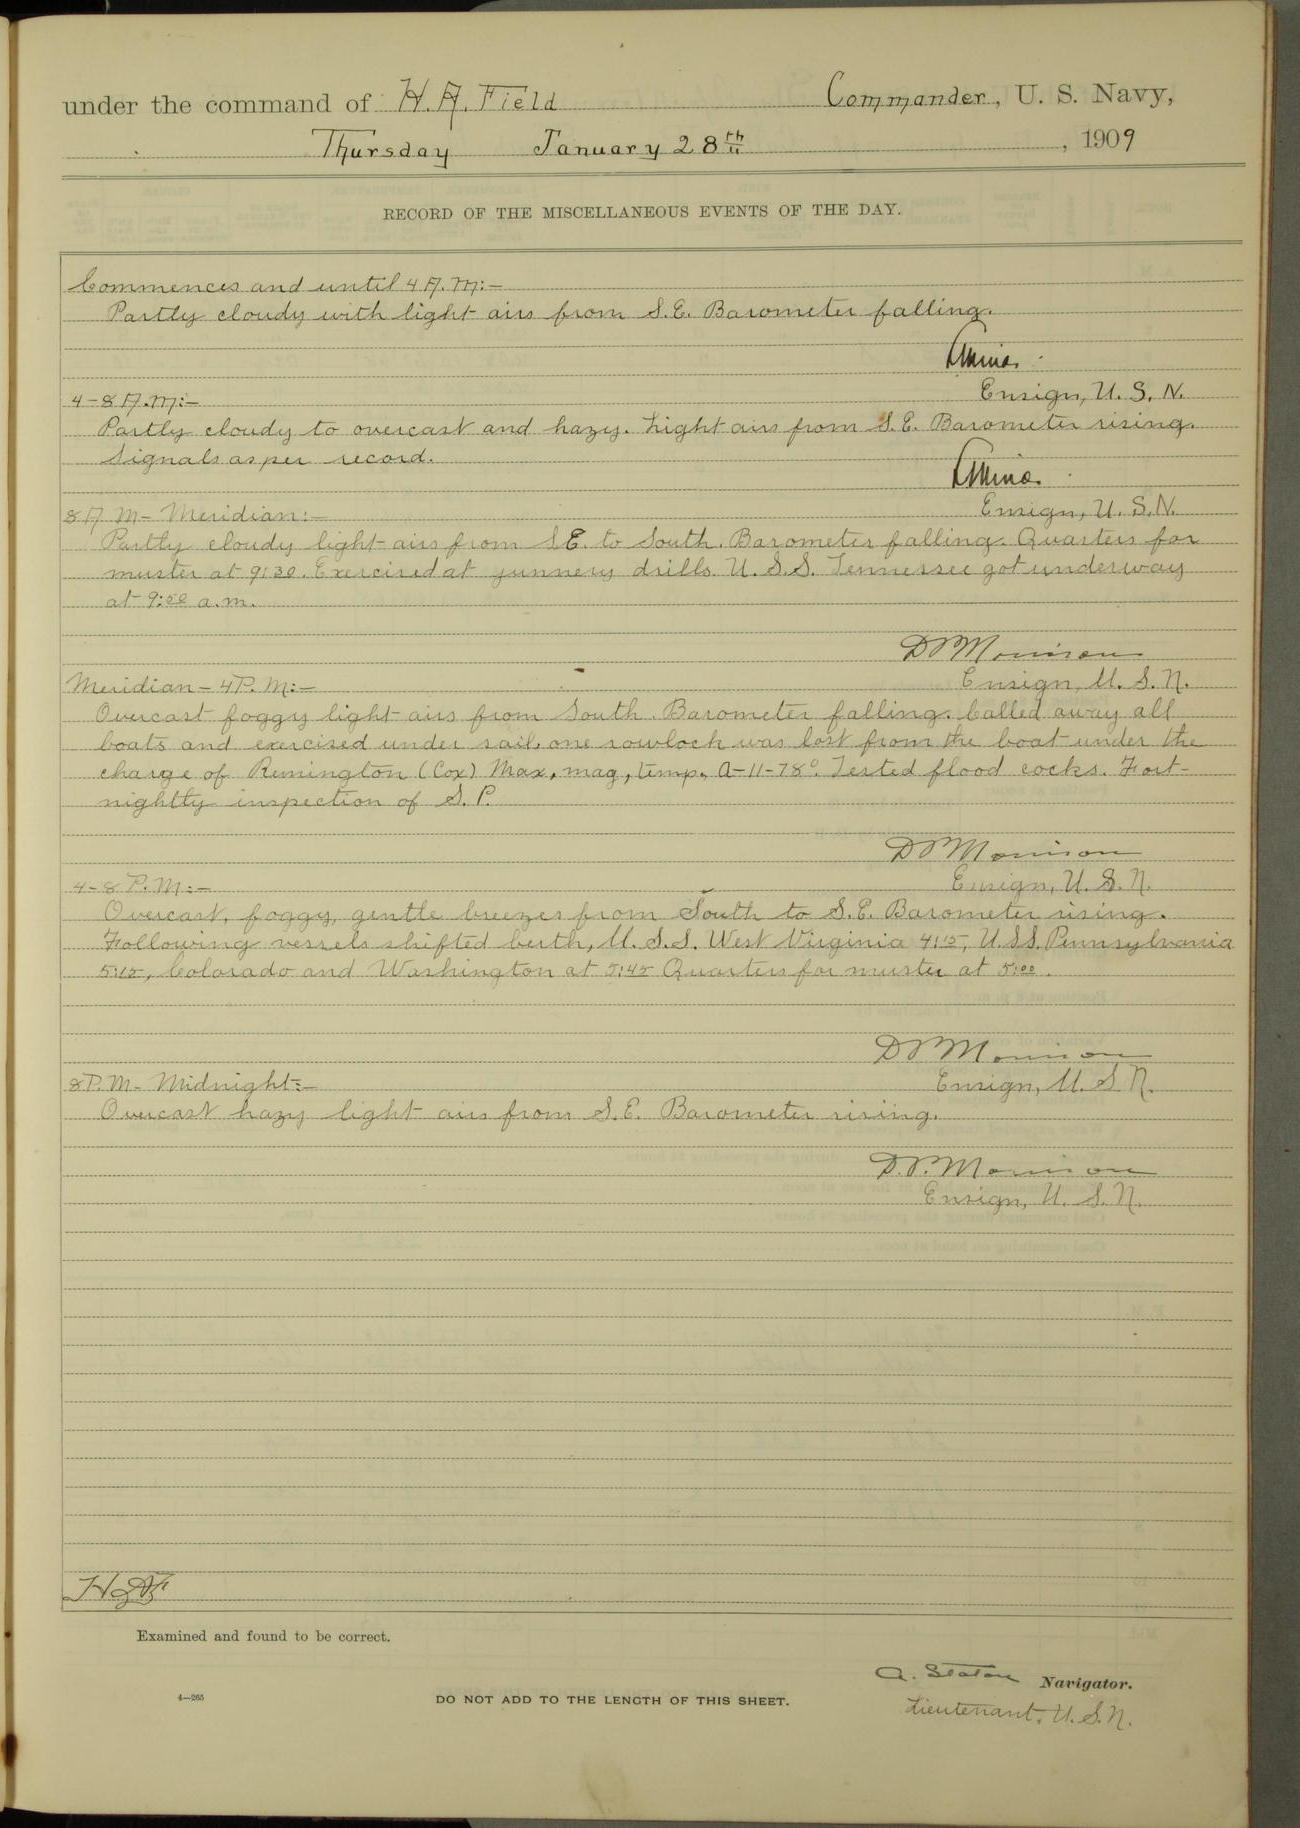 under the command of H. A. Field Commander, U. S. Navy,
Thursday January 28th, 1909
RECORD OF THE MISCELLANEOUS EVENTS OF THE DAY.
Commences and until 4 A.M:—
Partly cloudy with light airs from S.E. Barometer falling.
Ensign, U. S. N.
4-8 A.M:—
Partly cloudy to overcast and hazy. Light airs from S.E. Barometer rising.
Signals as per record.
Ensign, U. S. N.
8 A M- Meridian:—
Partly cloudy light airs from S.E. to South. Barometer falling. Quarters for
muster at 9:30. Exercised at gunnery drills. U.S.S. Tennessee got underway
at 9:00 a.m.
D P Morrison
Ensign, U. S. N.
Meridian - 4 P. M:—
Overcast foggy light airs from South. Barometer falling. Called away all
boats and exercised under sail, one rowlock was lost from the boat under the
charge of Remington (Cox) Max, mag, temp, A-11-78°. Tested flood cocks. Fort-
nightly inspection of S. P.
D P Morrison
Ensign, U. S. N.
4-8 P. M:—
Overcast, foggy, gentle breezes from South to S.E. Barometer rising.
Following vessels shifted berth, U. S. S. West Virginia 4:15, U.S.S. Pennsylvania
5:15, Colorado and Washington at 5:45 Quarters for muster at 5:00.
D P Morrison
Ensign, U. S. N.
8 P. M- Midnight:—
Overcast hazy light airs from S.E. Barometer rising.
D. P. Morrison
Ensign, U. S. N.
HAF
Examined and found to be correct.
A. Staton Navigator.
4—265
DO NOT ADD TO THE LENGTH OF THIS SHEET.
Lieutenant, U. S. N.